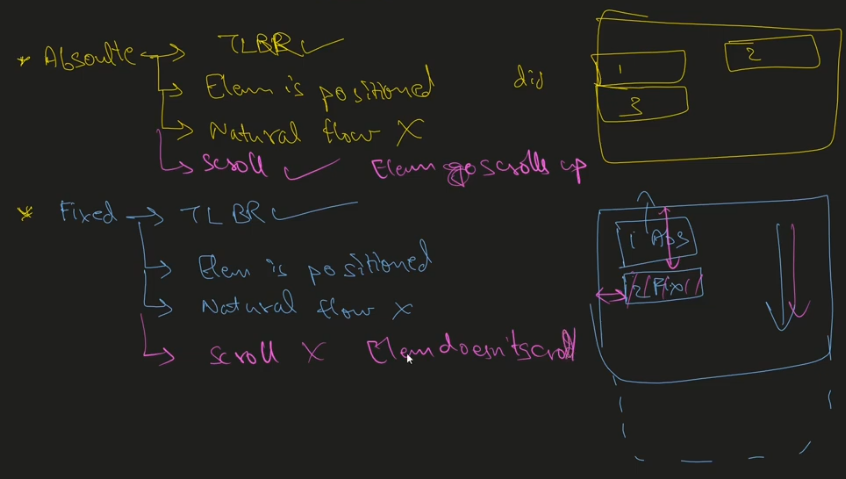 * Absoulte → TLBR ✓
→ Elem is positioned
did
→ Natural flow X
→ scroll ✓ Elem go scrolls up
1
2
3
* Fixed → TLBR ✓
→ Elem is positioned
→ Natural flow X
→ scroll X Elem doesn't scroll
1 Abs
2 Fix